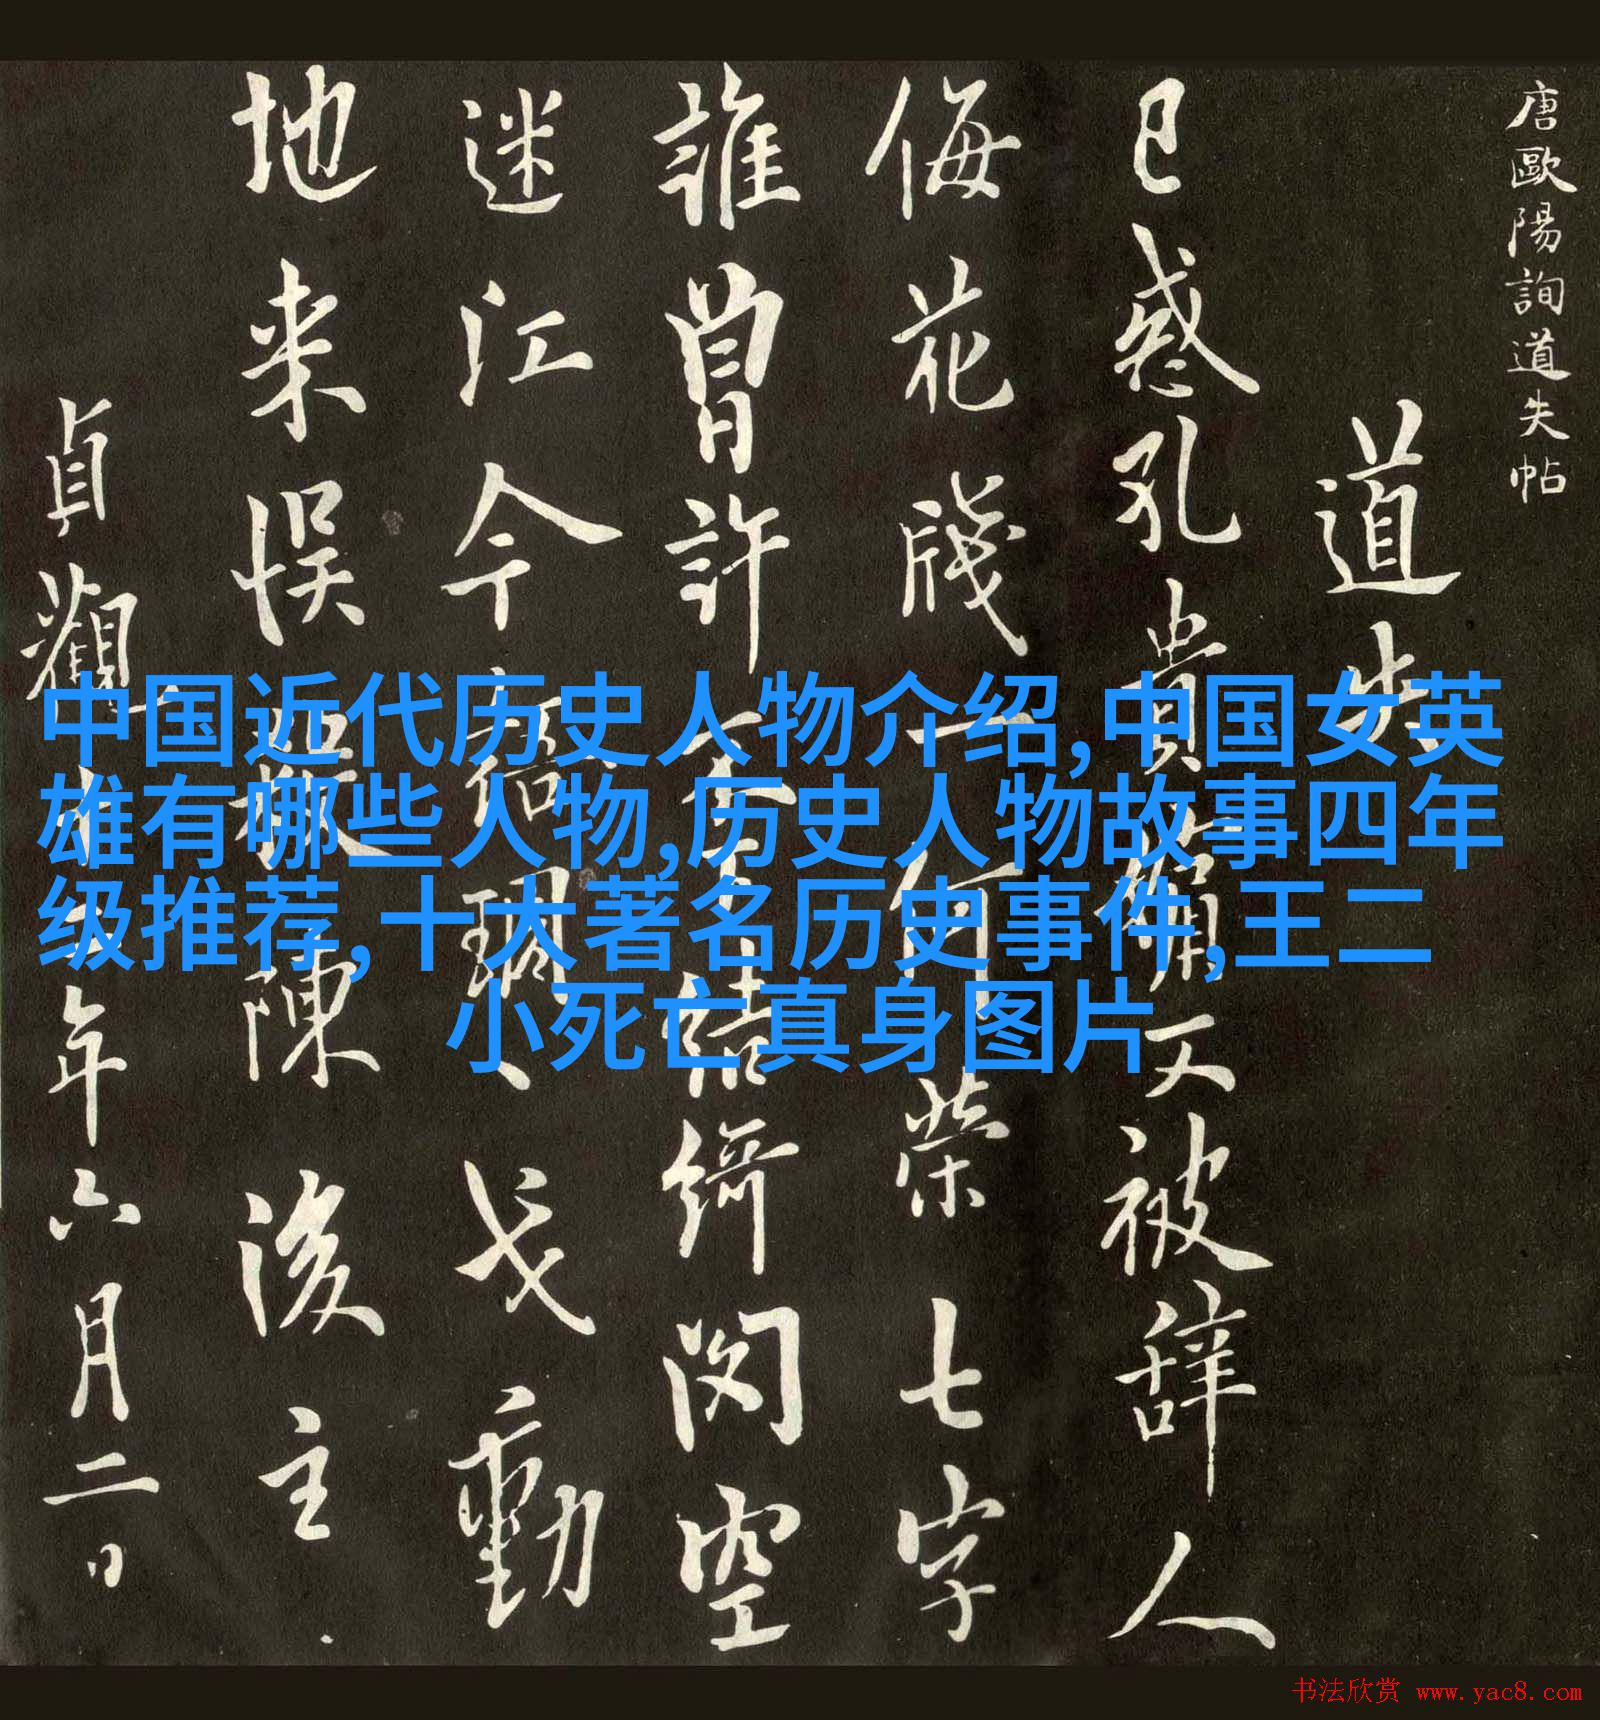 唐歐陽詢道失帖
道失
已惑孔貴嬪又被辭人
侮花牋一何榮七字
誰曾許
結綺閣空
迷江令
戈動
地来误
陳後主
貞觀
年六月二日
中国近代历史人物介绍,中国女英
雄有哪些人物,历史人物故事四年
级推荐,十大著名历史事件,王二
小死亡真身图片
书法欣赏 www.yac8.com